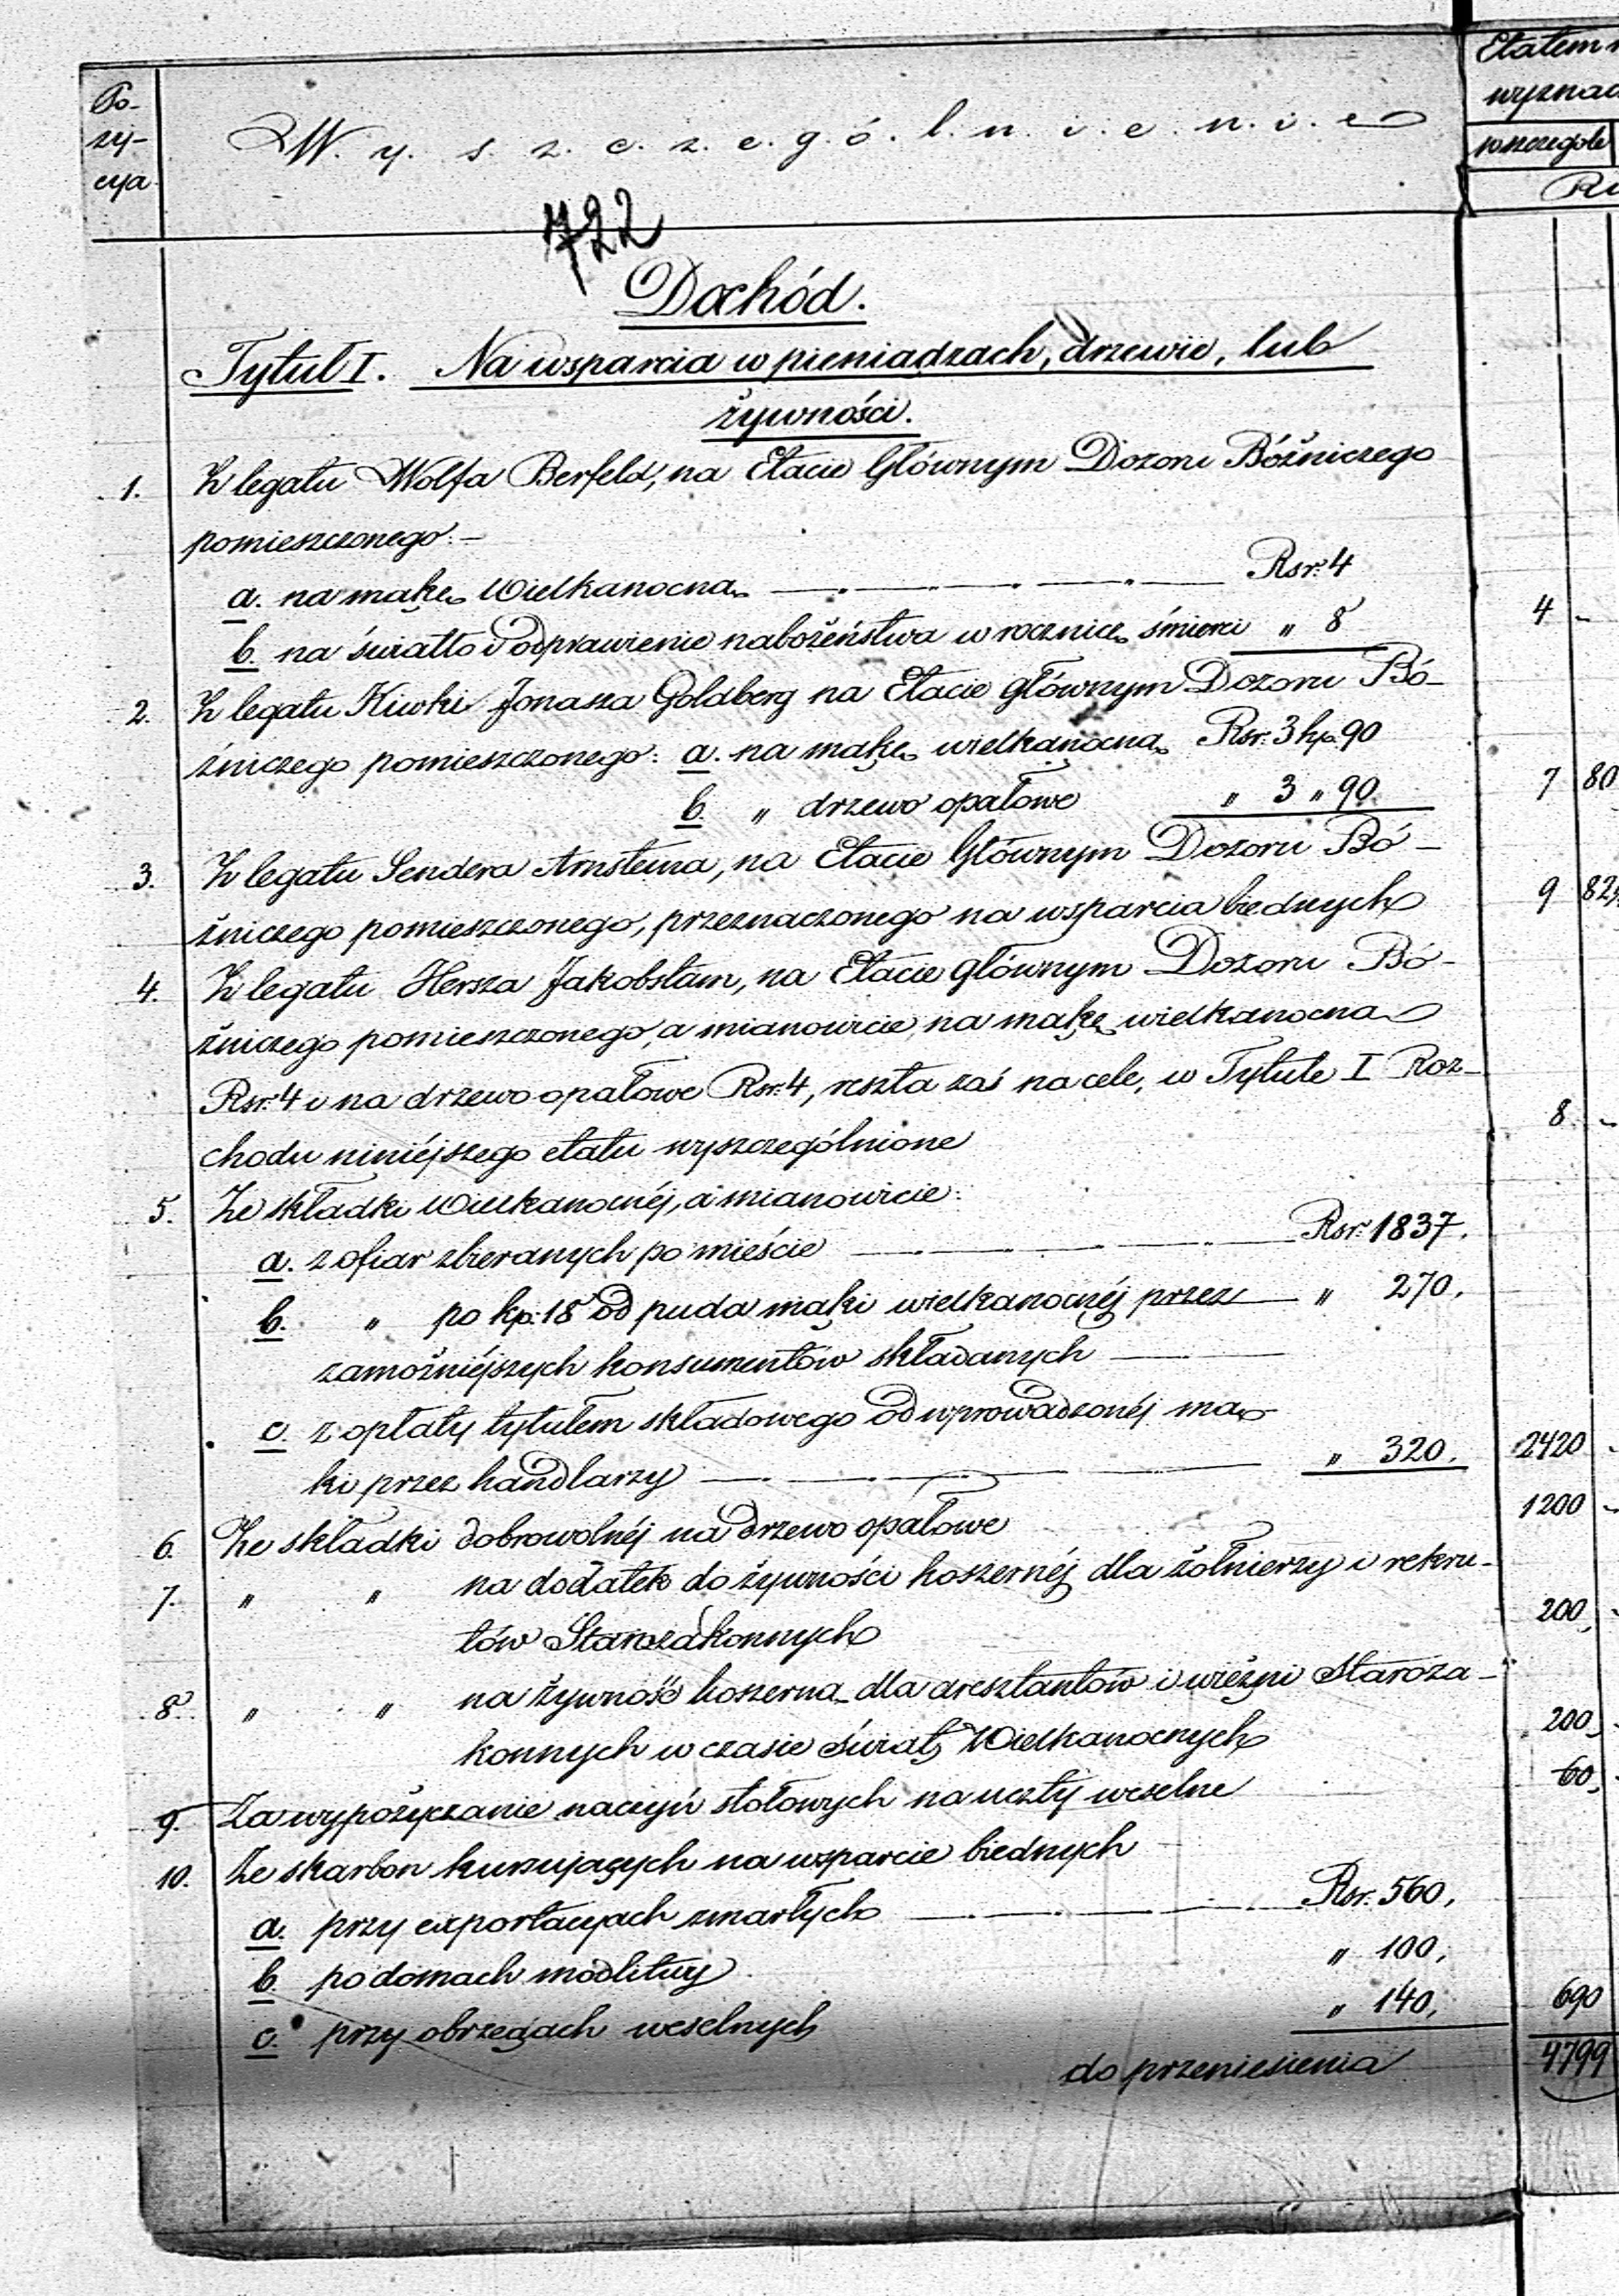 Etatem
wyznac
Po-
zy-
cya
W. y. s. z. c. z. e. g. ó. l. n. i. e. n. i. e
wszczegole
R
722
Dochód.
Tytuł I. Na wsparcia w pieniądzach, drzewie, lub
żywności.
1. Z legatu Wolfa Berfeld, na Etacie Głównym Dozoru Bóźniczego
pomieszczonego:-
a. na mąkę Wielkanocną Rsr. 4
4 -
b. na światło i odprawienie nabożeństwa w rocznicę śmierci " 8
2. Z legatu Kiwki Jonasza Goldberg na Etacie głównym Dozoru Bó-
źniczego pomieszczonego: a. na mąkę wielkanocną Rsr. 3 kp. 90
b. " drzewo opałowe " 3 " 90.
7 80
3. Z legatu Sendera Arnsteina, na Etacie Głównym Dozoru Bó-
źniczego pomieszczonego, przeznaczonego na wsparcia biednych
9 82
4. Z legatu Hersza Jakobstam, na Etacie głównym Dozoru Bó-
źniczego pomieszczonego, a mianowicie, na mąkę wielkanocną
Rsr. 4 i na drzewo opałowe Rsr. 4, reszta zaś na cele, w Tytule I Roz-
chodu niniéjszego etatu wyszczególnione
8. -
5. Ze składki Wielkanocnéj, a mianowicie:
a. z ofiar zbieranych po mieście Rsr. 1837.
b. " po kp. 18 od puda mąki wielkanocnéj przez " 270.
zamożniéjszych konsumentów składanych
c. z opłaty tytułem składowego od wprowadzonéj mą-
ki przez handlarzy " 320.
2420 -
6. Ze składki dobrowolnéj na drzewo opałowe
1200 -
7. " " na dodatek do żywności koszernéj dla żołnierzy i rekru-
tów Starozakonnych
200, -
8. " " na żywność koszerną dla aresztantów i więźni Staroza-
konnych w czasie świąt Wielkanocnych
200, -
9. Za wypożyczanie naczyń stołowych na uczty weselne
60, -
10. Ze skarbon kursujących na wsparcie biednych
a. przy exportacyach zmarłych Rsr. 560,
b. po domach modlitwy " 100,
c. przy obrzęgach weselnych " 140,
690
do przeniesienia
4799